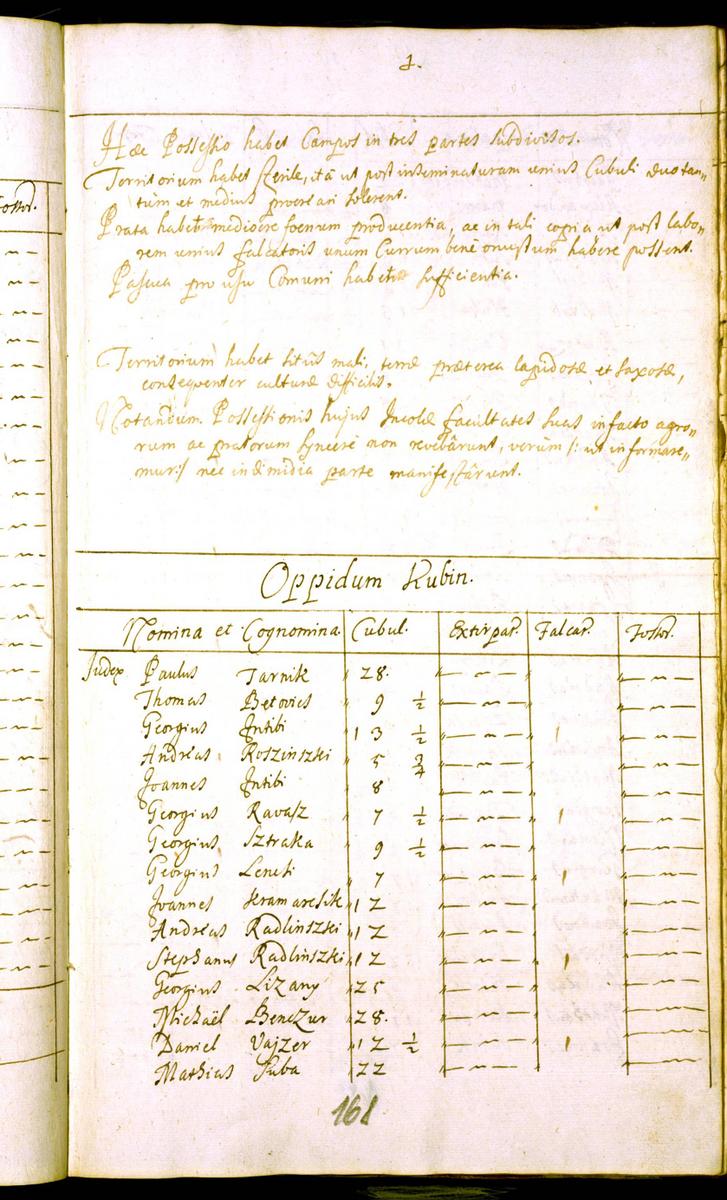 Fossor.
1.
Hæc Possessio habet Campos in tres partes subdivisos.
Territorium habet sterile, ità ut post inseminaturam unius Cubuli duo tan„
tùm et medius procreari solerent.
Prata habet mediocre foenum producentia, ac in tali copia ut post labo„
rem unius falcatoris unum Currum benè onustum habere possent.
Pascua pro usu Comuni habet sufficientia.
Territorium habet sitûs mali, terræ præterea lapidosæ et saxosæ,
consequenter culturæ difficilis.
Notandum. Possessionis hujus Incolæ facultates suas in facto agro„
rum ac pratorum syncerè non revelârunt, verùm /: ut informare„
mur:/ nec in dimidia parte manifestârunt.
Oppidum Kubin.
Nomina et Cognomina. Cubul. Extirpat. Falcat. Fossor.
Judex Paulus Tarnik „ 28. „— ~ —„ „— ~ —
Thomas Betovics „ 9 ½ „— ~ —„ „— ~ —
Georgius Intibi „ 13 ½ „— ~ —„ 1 „— ~ —
Andreas Roszinszki „ 5 ¾ „— ~ —„ „— ~ —
Joannes Intibi „ 8 „— ~ —„ „— ~ —
Georgius Ravasz „ 7 ½ „— ~ —„ 1 „— ~ —
Georgius Sztraka „ 9 ½ „— ~ —„ „— ~ —
Georgius „ 7 „— ~ —„ 1 „— ~ —
Joannes Kramarcsik „ 12 „— ~ —„ „— ~ —
Andreas Radlinszki „ 12 „— ~ —„ „— ~ —
Stephanus Radlinszki „ 12 „— ~ —„ 1 „— ~ —
Georgius Lizany „ 25 „— ~ —„ „— ~ —
Michaël Benczur „ 28. „— ~ —„ „— ~ —
Daniel Vajzer „ 12 ½ „— ~ —„ 1 „— ~ —
Mathias Suba „ 22 „— ~ —„ „— ~ —
161